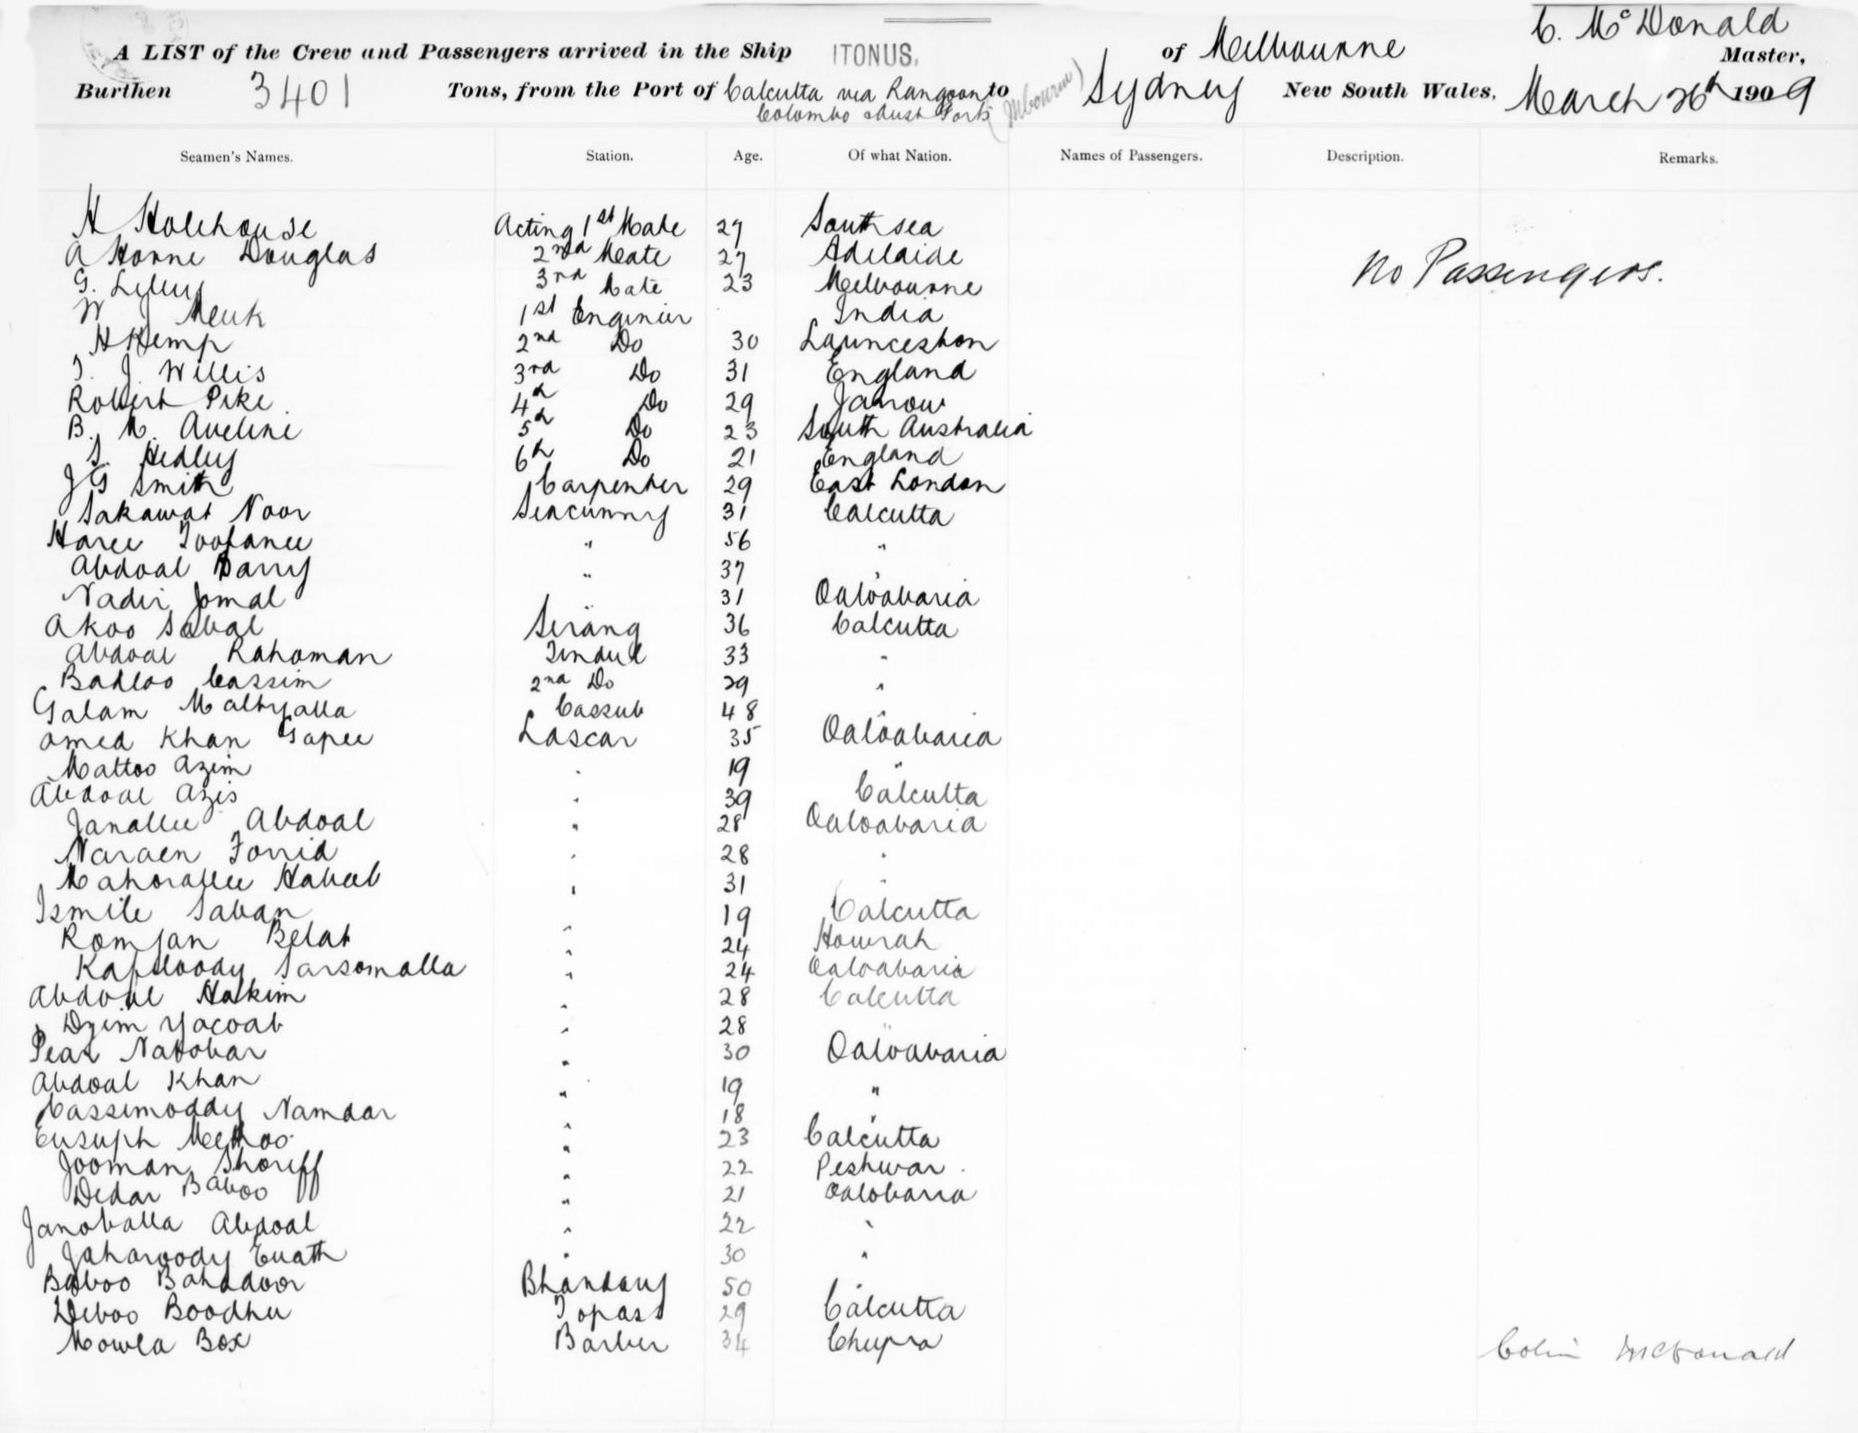 C. McDonald
A LIST of the Crew and Passengers arrived in the Ship ITONUS, of Melbourne Master,
Burthen 3401 Tons, from the Port of Calcutta via Rangoon to Sydney New South Wales, March 26th 1909
Colombo & Aust Ports (Melbourne)
Seamen's Names. Station. Age. Of what Nation. Names of Passengers. Description. Remarks.
H Holehouse Acting 1st Mate 27 Southsea
A Horne Douglas 2nd Mate 27 Adelaide
G. Lilley 3rd Mate 23 Melbourne
No Passengers.
W J Meuk 1st Engineer India
H Kemp 2nd Do 30 Launceston
T. J. Willis 3rd Do 31 England
Robert Pike 4th Do 29 Jarrow
B. M. Aveline 5th Do 23 South Australia
S. Hedley 6th Do 21 England
J G Smith Carpenter 29 East London
Sakawat Noor Seacunny 31 Calcutta
Haree Toofanee " 56 "
Abdoal Barry " 37 "
Nadir Jomal " 31 Ooloobaria
Akoo Sabal Serang 36 Calcutta
Abdoal Rahoman Tindal 33 "
Badloo Cassim 2nd Do 29 "
Galam Maltyalla Cassub 48 "
Omed Khan Gapee Lascar 35 Ooloobaria
Mattoo Azim " 19 "
Abdoal Azis " 39 Calcutta
Janallee Abdoal " 28 Ooloobaria
Naraen Forrid " 28 "
Mahorallee Habeeb " 31 "
Ismile Saban " 19 Calcutta
Romjan Belat " 24 Howrah
Kafiloody Sarsomalla " 24 Ooloobaria
Abdoal Hakim " 28 Calcutta
Dzim Yacoob " 28 "
Pear Natobar " 30 Ooloobaria
Abdoal Khan " 19 "
Cassimoddy Namdar " 18 "
Eusuph Meethoo " 23 Calcutta
Jooman Shoriff " 22 Peshwar.
Dedar Baboo " 21 Oolobaria
Janoballa Abdoal " 22 "
Jaharoody Euath " 30 "
Baboo Bahadoor Bhandary 50 "
Deboo Boodhu Topass 29 Calcutta
Mowla Box Barber 34 Chupra
Colin McDonald